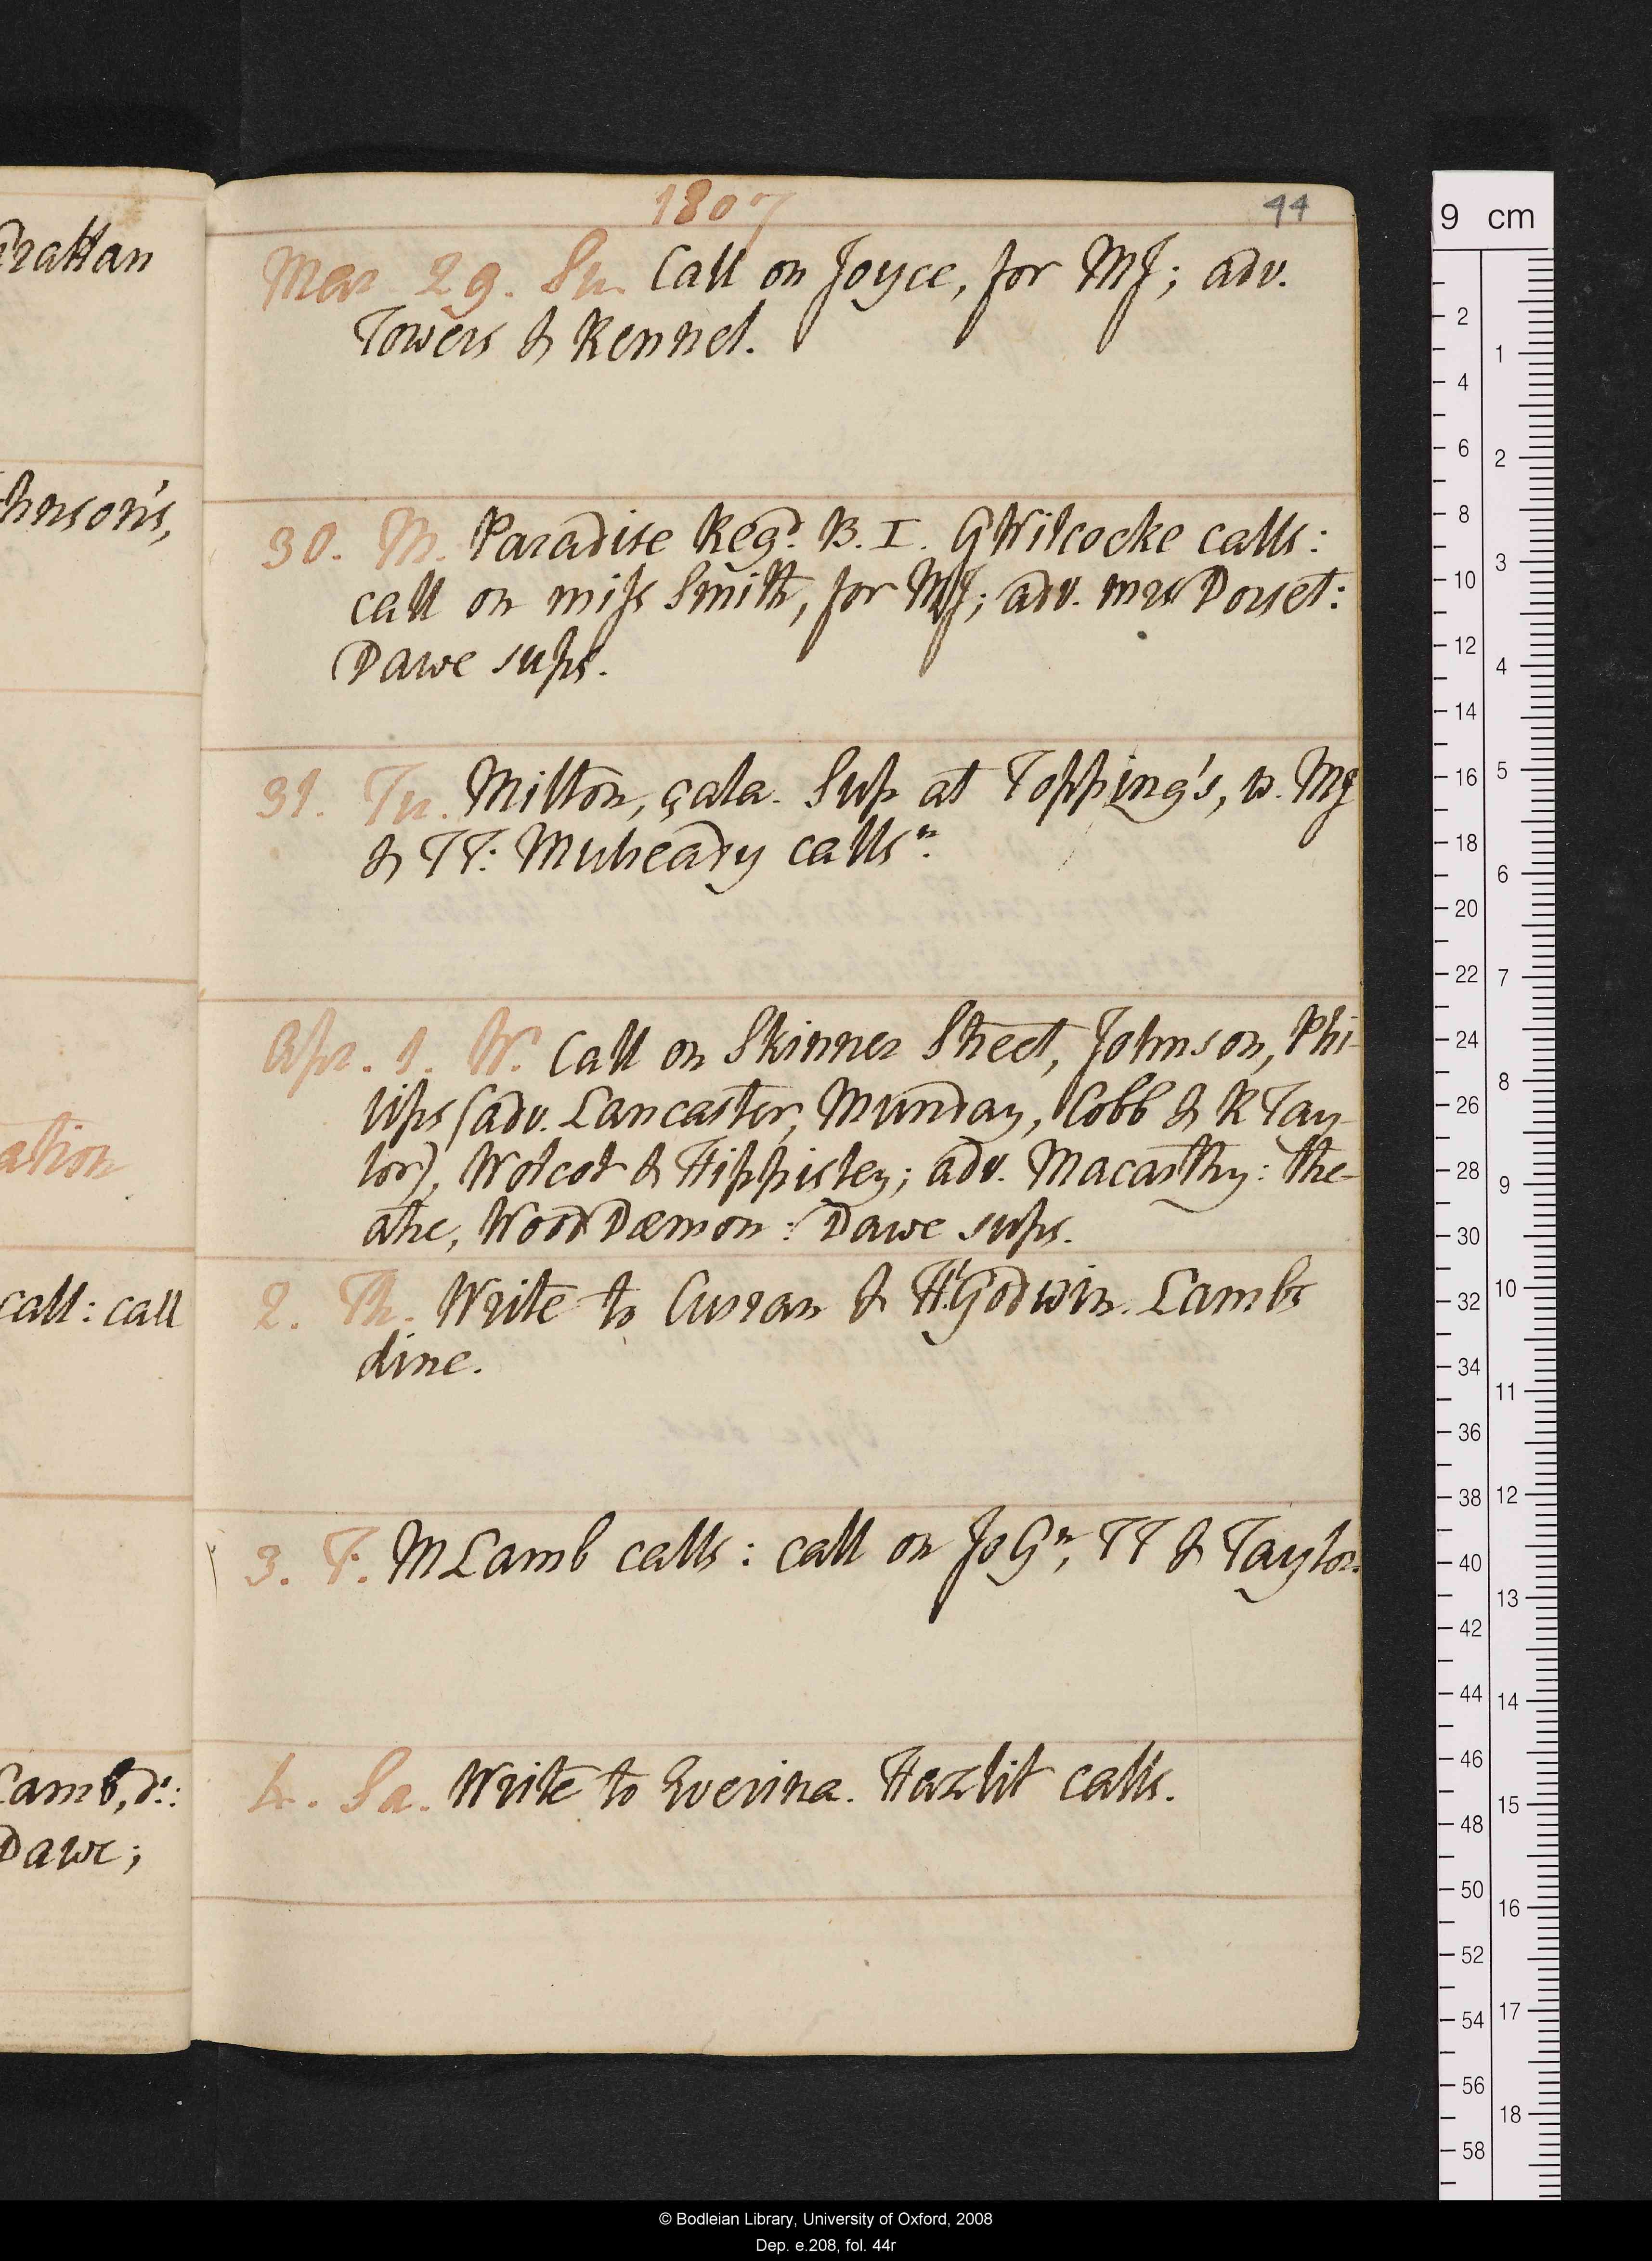 rattan
hnson's,
ation
call: call
Lamb, do:
Dawe;
1807
44
Mar 29. Su. Call on Joyce, for MJ; adv.
Towers & Kennel.
30. M. Paradise Regd. B. I. GWilcocke calls:
call on miss Smith, for MJ; adv. mrs Dorset:
Dawe sups.
31. Tu. Milton, çala. Sup at Topping's, w. MJ
& TT: Mulready calls n.
Apr. 1. W. Call on Skinner Street, Johnson, Phi-
lips (adv. Lancaster, Munday, Cobb & R Tay-
lor), Wolcot & Hippisley; adv. Macarthy: the-
atre, Wood Dæmon: Dawe sups.
2. Th. Write to Curran & HGodwin. Lambs
dine.
3. F. MLamb calls: call on Jo Gn, TT & Taylor.
4. Sa. Write to Everina. Hazlit calls.
9 cm
2
4
6
8
10
12
14
16
18
20
22
24
26
28
30
32
34
36
38
40
42
44
46
48
50
52
54
56
58
1
2
3
4
5
6
7
8
9
10
11
12
13
14
15
16
17
18
© Bodleian Library, University of Oxford, 2008
Dep. e.208, fol. 44r